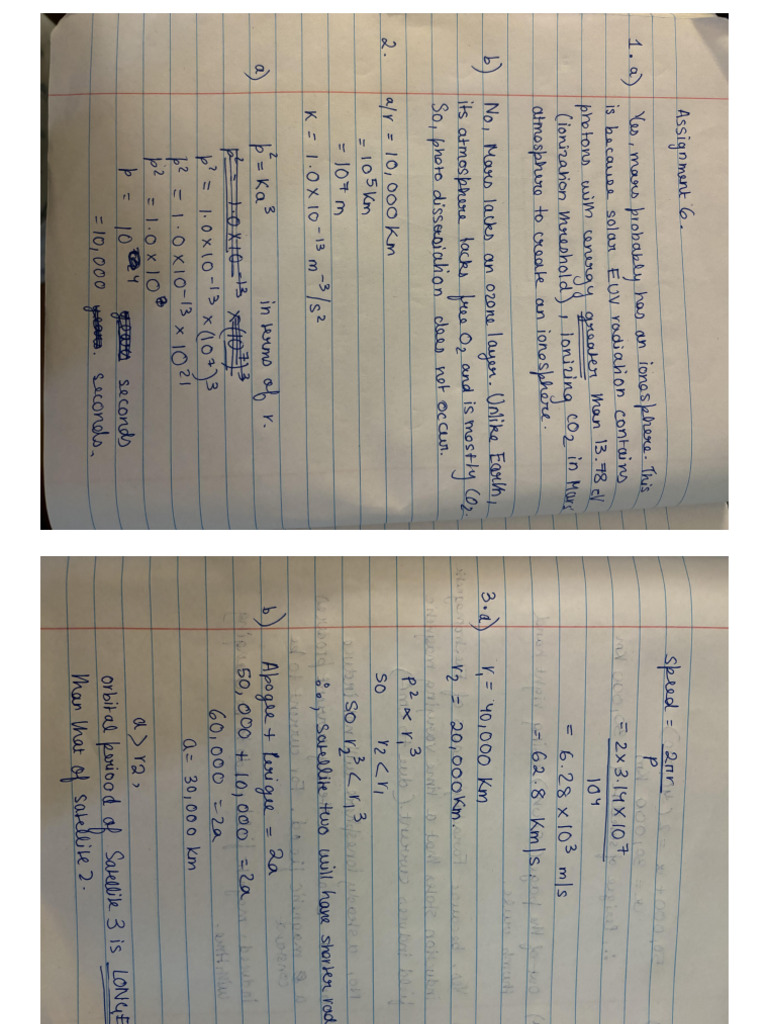 Assignment 6.
1. a) Yes, mars probably has an ionosphere. This
is because solar EUV radiation contains
protons with energy greater than 13.78 eV
(ionization threshold), ionizing CO2 in Mars'
atmosphere to create an ionosphere.
b) No, Mars lacks an ozone layer. Unlike Earth,
its atmosphere lacks free O2 and is mostly CO2.
So, photo dissosiation does not occur.
2. a/r = 10,000 Km
= 10^5 km
= 10^7 m
K = 1.0 × 10^-13 m^-3/s^2
a) p^2 = Ka^3 in terms of r.
p^2 = 1.0 × 10^-13 × (10^7)^3
p^2 = 1.0 × 10^-13 × (10^7)^3
p^2 = 1.0 × 10^-13 × 10^21
p^2 = 1.0 × 10^8
p = 10^4 seconds
= 10,000 seconds.
Speed = 2πr/p
= 2 × 3.14 × 10^7 / 10^4
= 6.28 × 10^3 m/s
= 62.8 Km/s.
3. a) r1 = 40,000 Km
r2 = 20,000 Km.
p^2 ∝ r^3
so r2 < r1
so r2^3 < r1^3
i.e, Satellite two will have shorter rad
b) Apogee + Perigee = 2a
50,000 + 10,000 = 2a
60,000 = 2a
a = 30,000 km
a > r2,
orbital period of Satellite 3 is LONGE
than that of Satellite 2.